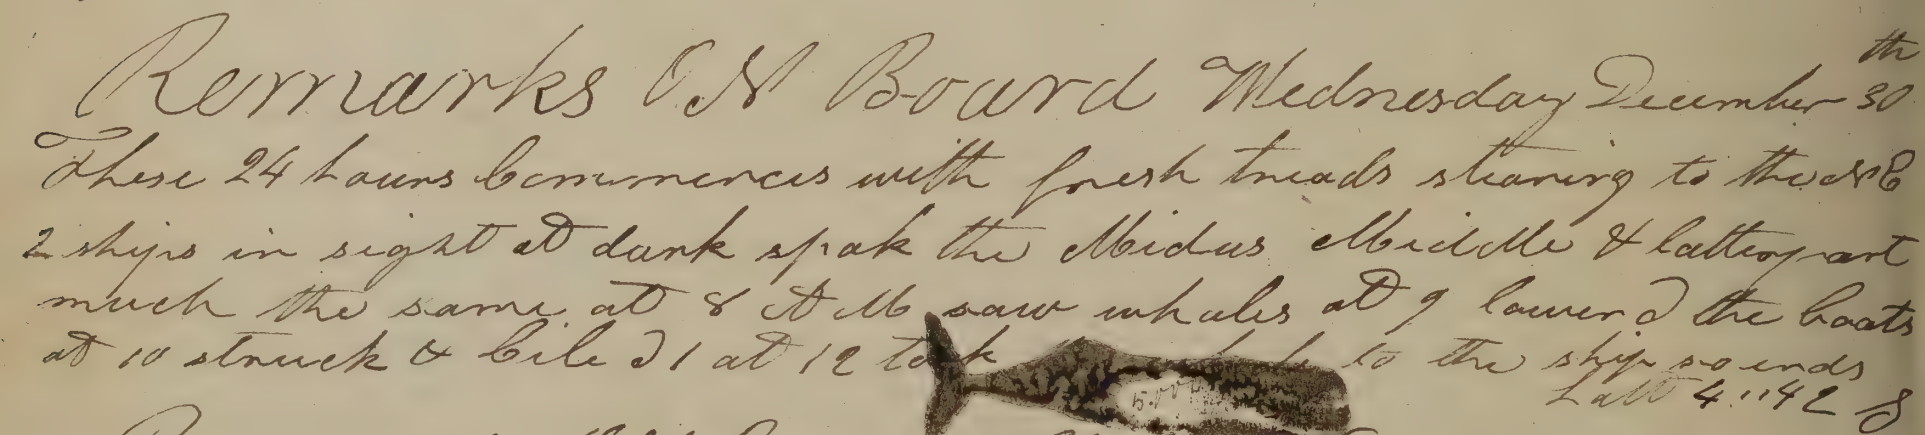 Remarks ON Board Wednesday December 30th
These 24 hours Commences with fresh treads stearing to the NE
2 ships in sight at dark spok the Midas Middle & latter part
much the same at 8 A M saw whales at 9 lower d the boats
at 10 struck & Cile d 1 at 12 took to the ship so ends
Latt 4..42 S